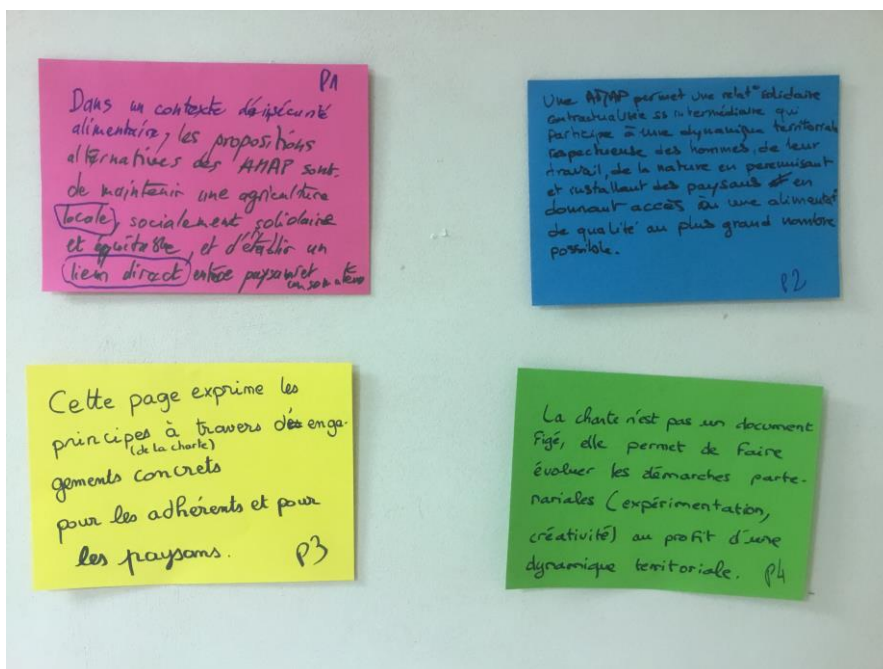 P1
Dans un contexte d'insécurité
alimentaire, les propositions
alternatives des AMAP sont
de maintenir une agriculture
locale, socialement solidaire
et équitable, et d'établir un
lien direct entre paysan et
consommateur
Une AMAP permet une relat° solidaire
contractualisée ss intermédiaire qui
participe à une dynamique territoriale
respectueuse des hommes, de leur
travail, de la nature en perennisant
et installant des paysans et en
donnant accès à une alimentat°
de qualité au plus grand nombre
possible.
P2
Cette page exprime les
principes à travers des enga-
(de la charte)
gements concrets
pour les adhérents et pour
les paysans.
P3
La charte n'est pas un document
Figé, elle permet de Faire
évoluer les démarches parte-
nariales (expérimentation,
créativité) au profit d'une
dynamique territoriale. P4